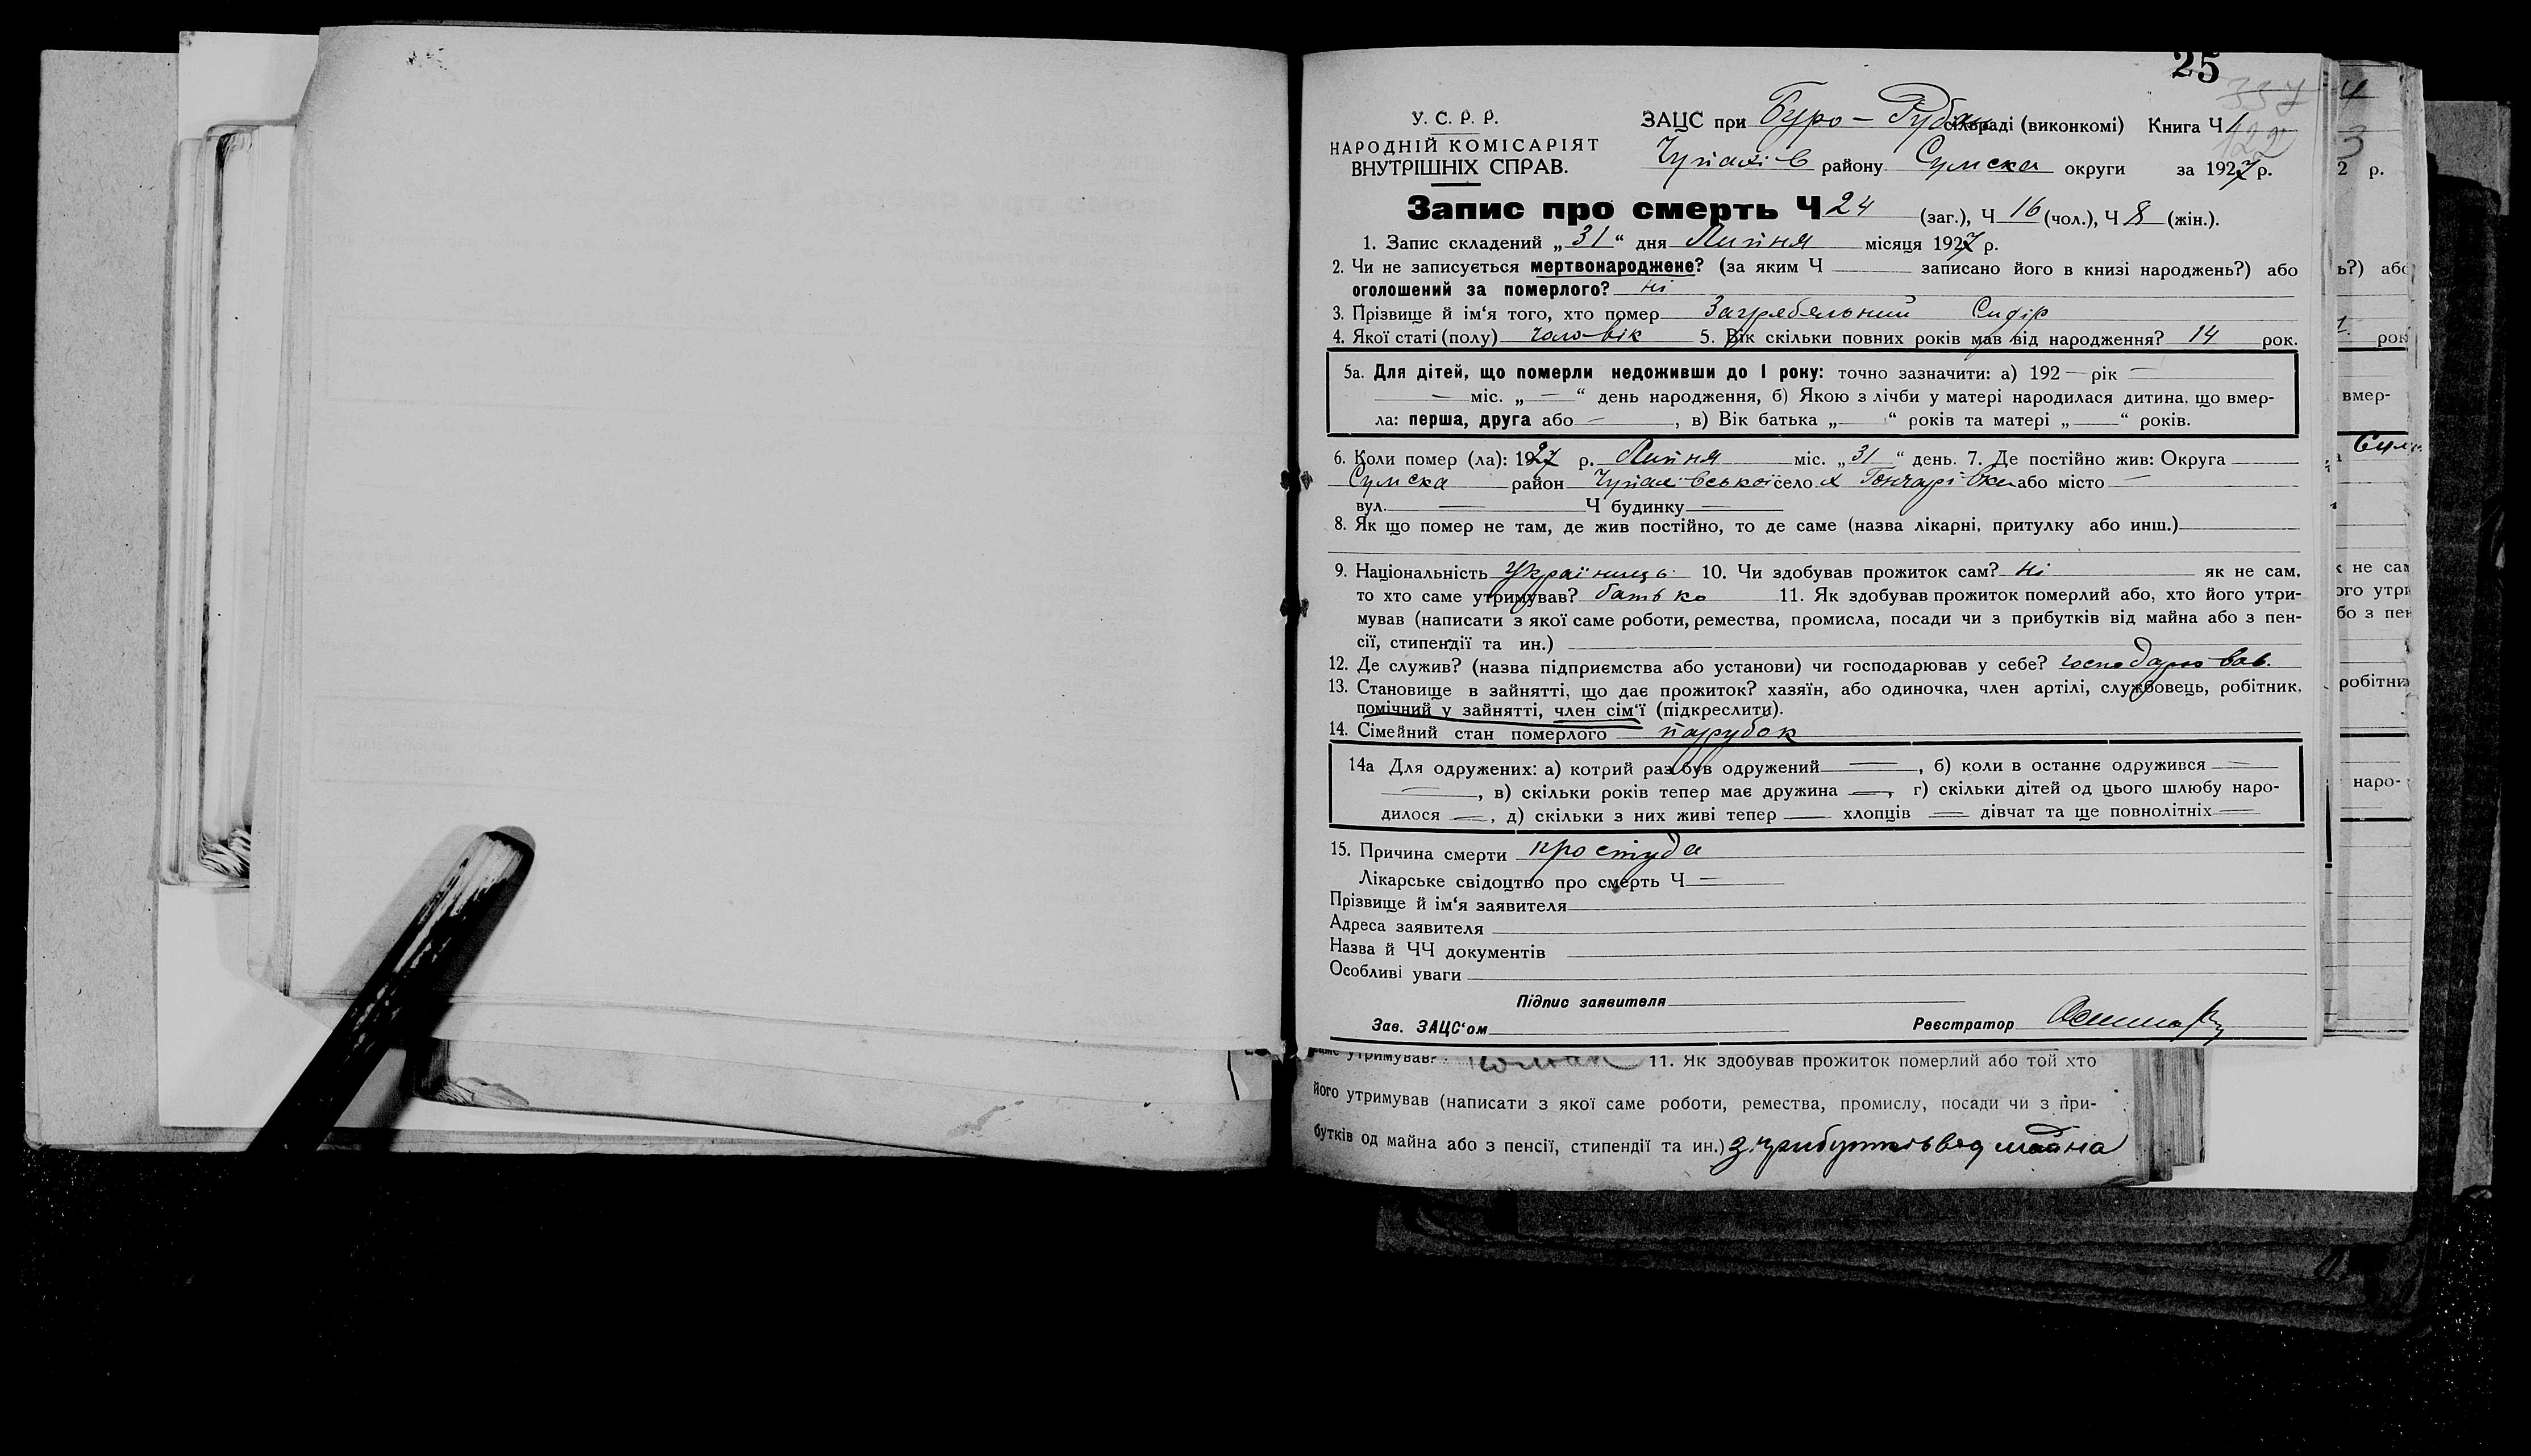 25
337
122
У. С. Р. Р.
НАРОДНІЙ КОМІСАРІЯТ
ВНУТРІШНІХ СПРАВ.
ЗАЦС при Буро-Рубан сільраді (виконкомі) Книга Ч 1
Чупахів району Сумска округи за 1927 р.
Запис про смерть Ч 24 (заг.), Ч 16 (чол.), Ч 8 (жін.).
1. Запис складений „31“ дня Липня місяця 1927 р.
2. Чи не записується мертвонароджене? (за яким Ч записано його в книзі народжень?) або
оголошений за померлого? ні
3. Прізвище й ім‘я того, хто помер Загребельний Сидір
4. Якої статі (полу) чоловік 5. Вік скільки повних років мав від народження? 14 рок.
5а. Для дітей, що померли недоживши до 1 року: точно зазначити: а) 192 — рік —
— міс. „ — “ день народження, б) Якою з лічби у матері народилася дитина, що вмер-
ла: перша, друга або — , в) Вік батька „ — “ років та матері „ — “ років.
6. Коли помер (ла): 1927 р. Липня міс. „31“ день. 7. Де постійно жив: Округа
Сумска район Чупахівської село х Гончарівка або місто —
вул. — Ч будинку —
8. Як що помер не там, де жив постійно, то де саме (назва лікарні, притулку або инш.)
9. Національність Українець 10. Чи здобував прожиток сам? ні як не сам,
то хто саме утримував? батько 11. Як здобував прожиток померлий або, хто його утри-
мував (написати з якої саме роботи, ремества, промисла, посади чи з прибутків від майна або з пен-
сії, стипендії та ин.)
12. Де служив? (назва підприємства або установи) чи господарював у себе? господарював.
13. Становище в зайнятті, що дає прожиток? хазяїн, або одиночка, член артілі, службовець, робітник,
помічний у зайнятті, член сім‘ї (підкреслити).
14. Сімейний стан померлого парубок
14а Для одружених: а) котрий раз був одружений — , б) коли в останнє одружився —
— , в) скільки років тепер має дружина — , г) скільки дітей од цього шлюбу наро-
дилося — , д) скільки з них живі тепер — хлопців — дівчат та ще повнолітніх —
15. Причина смерти простуда
Лікарське свідоцтво про смерть Ч —
Прізвище й ім‘я заявителя
Адреса заявителя
Назва й ЧЧ документів
Особливі уваги
Підпис заявителя
Зав. ЗАЦС‘ом Реєстратор
саме утримував? 11. Як здобував прожиток померлий або той хто
його утримував (написати з якої саме роботи, ремества, промислу, посади чи з при-
бутків од майна або з пенсії, стипендії та ин.) з прибутків від майна
4
3
2 р.
ь?) або
рок
вмер-
к не сам
ого утри
бо з пен
робітник
наро-